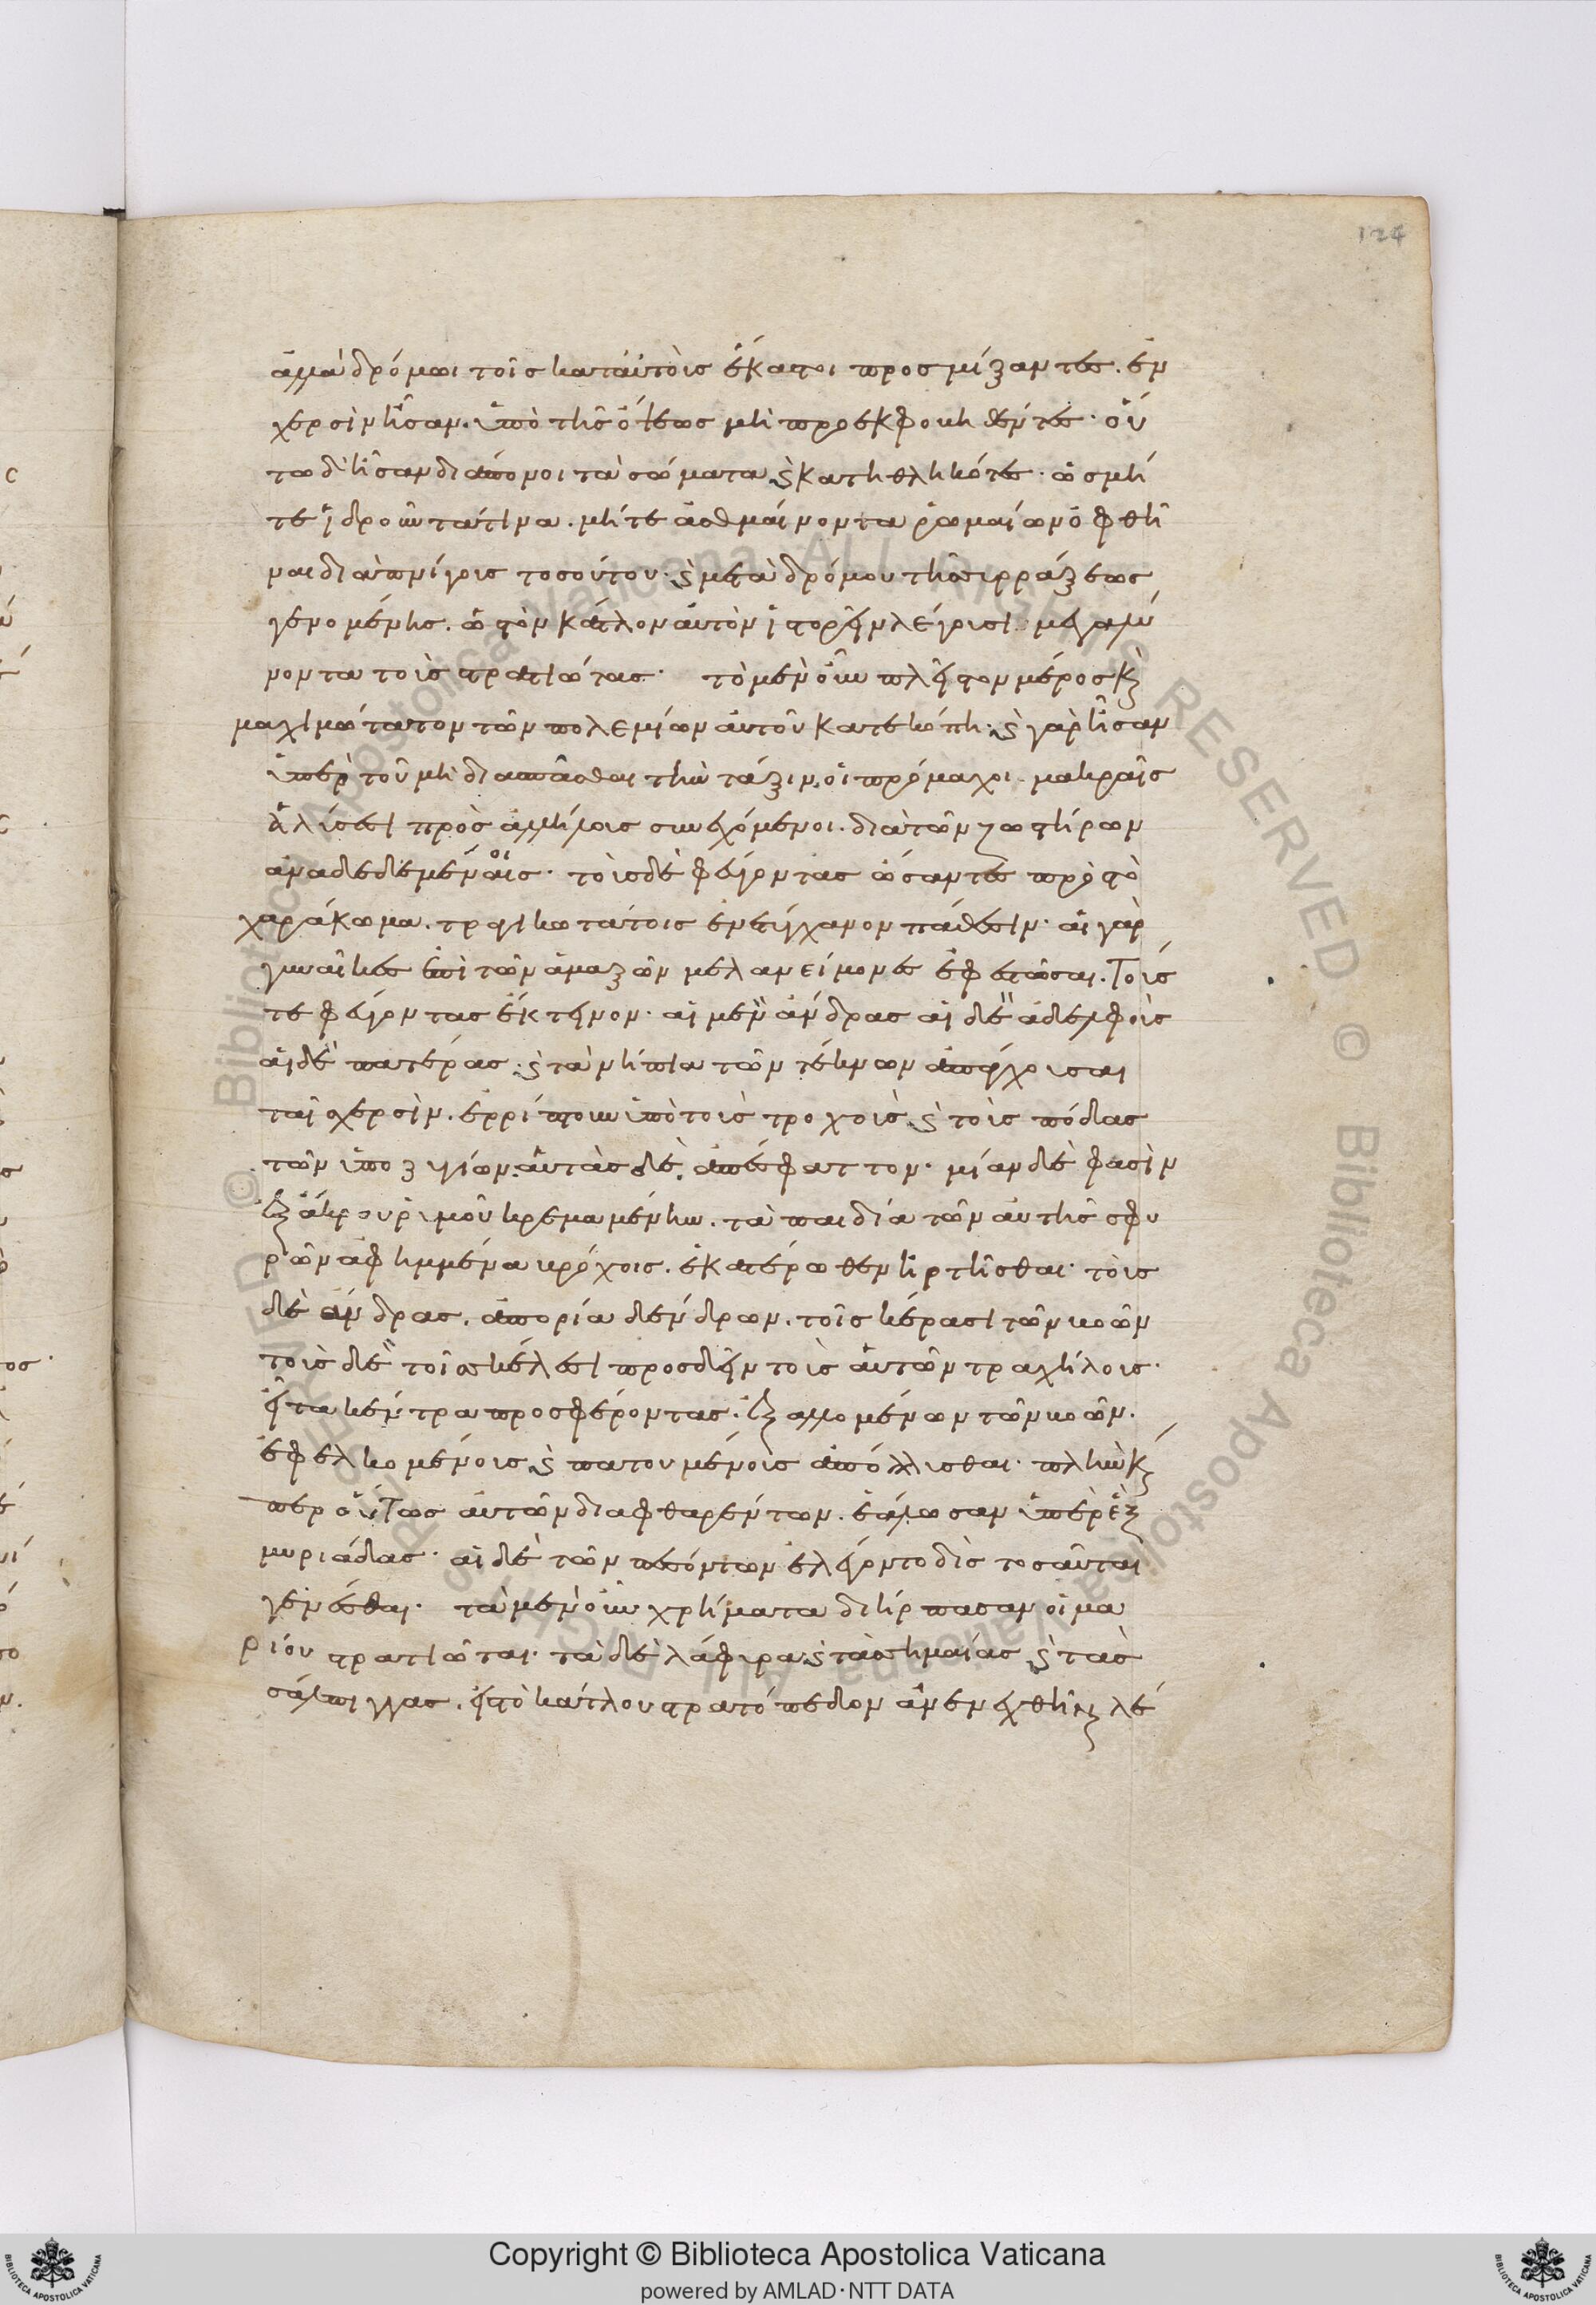 ἀλλὰ δρόμωι τοῖς κατ' αὐτοὺς ἕκαστοι προσμίξαντες. ἐν
χερσὶν ἦσαν. ὑπὸ τῆς ὄψεως μὴ προεκφοβηθέντες· οὕ
τω δ' ἦσαν διάπονοι τὰ σώματα καὶ κατηθληκότες· ὡς μή
τε ἱδροῦντά τινα. μήτε ἀσθμαίνοντα ῥωμαίων ὀφθῆ
ναι διὰ πνίγους τοσούτου· καὶ μετὰ δρόμου τῆς συρράξεως
γενομένης. ὡς τὸν κάτλον αὐτὸν ἱστορεῖν λέγουσι μεγαλύ
νοντα τοὺς στρατιώτας· τὸ μὲν οὖν πλεῖστον μέρος καὶ
μαχιμώτατον τῶν πολεμίων αὐτοῦ κατεκόπη· καὶ γὰρ ἦσαν
ὑπὲρ τοῦ μὴ διασπᾶσθαι τὴν τάξιν. οἱ πρόμαχοι. μακραῖς
ἁλύσεσι πρὸς ἀλλήλους συνεχόμενοι. διὰ τῶν ζωστήρων
ἀναδεδεμέναις· τοὺς δὲ φεύγοντας ὤσαντες πρὸς τὸ
χαράκωμα. τραγικωτάτοις ἐνετύγχανον πάθεσιν· αἱ γὰρ
γυναῖκες ἐπὶ τῶν ἁμαξῶν μελανείμονες ἐφεστῶσαι. τούς
τε φεύγοντας ἔκτεινον· αἱ μὲν ἄνδρας αἱ δὲ ἀδελφοὺς
αἱ δὲ πατέρας· καὶ τὰ νήπια τῶν τέκνων ἀπάγχουσαι
ταῖς χερσὶν. ἐρρίπτουν ὑπὸ τοὺς τροχοὺς καὶ τοὺς πόδας
τῶν ὑποζυγίων. αὐτὰς δὲ ἀπέσφαττον· μίαν δὲ φασὶν
ἐξ ἄκρου ῥυμοῦ κρεμαμένην. τὰ παιδία τῶν αὐτῆς σφυ
ρῶν ἀφημμένα βρόχοις. ἑκατέρωθεν ἠρτῆσθαι· τοὺς
δὲ ἄνδρας. ἀπορία δένδρων. τοῖς κέρασι τῶν βοῶν
τοὺς δὲ τοῖς σκέλεσι προσδεῖν τοὺς αὐτῶν τραχήλους·
εἶτα κέντρα προσφέροντας. ἐξαλλομένων τῶν βοῶν.
ἐφελκομένους καὶ πατουμένους ἀπόλλυσθαι· πλὴν καί
περ οὕτως αὐτῶν διαφθαρέντων. ἑάλωσαν ὑπὲρ ἓξ
μυριάδας· αἱ δὲ τῶν πεσόντων ἐλέγοντο δὶς τοσαῦται
γενέσθαι· τὰ μὲν οὖν χρήματα διήρπασαν οἱ μα
ρίου στρατιῶται· τὰ δὲ λάφυρα καὶ τὰς σημαίας καὶ τὰς
σάλπιγγας. εἰς τὸ κάτλου στρατόπεδον ἀνενεχθῆναι λέ
124
Copyright © Biblioteca Apostolica Vaticana
powered by AMLAD·NTT DATA